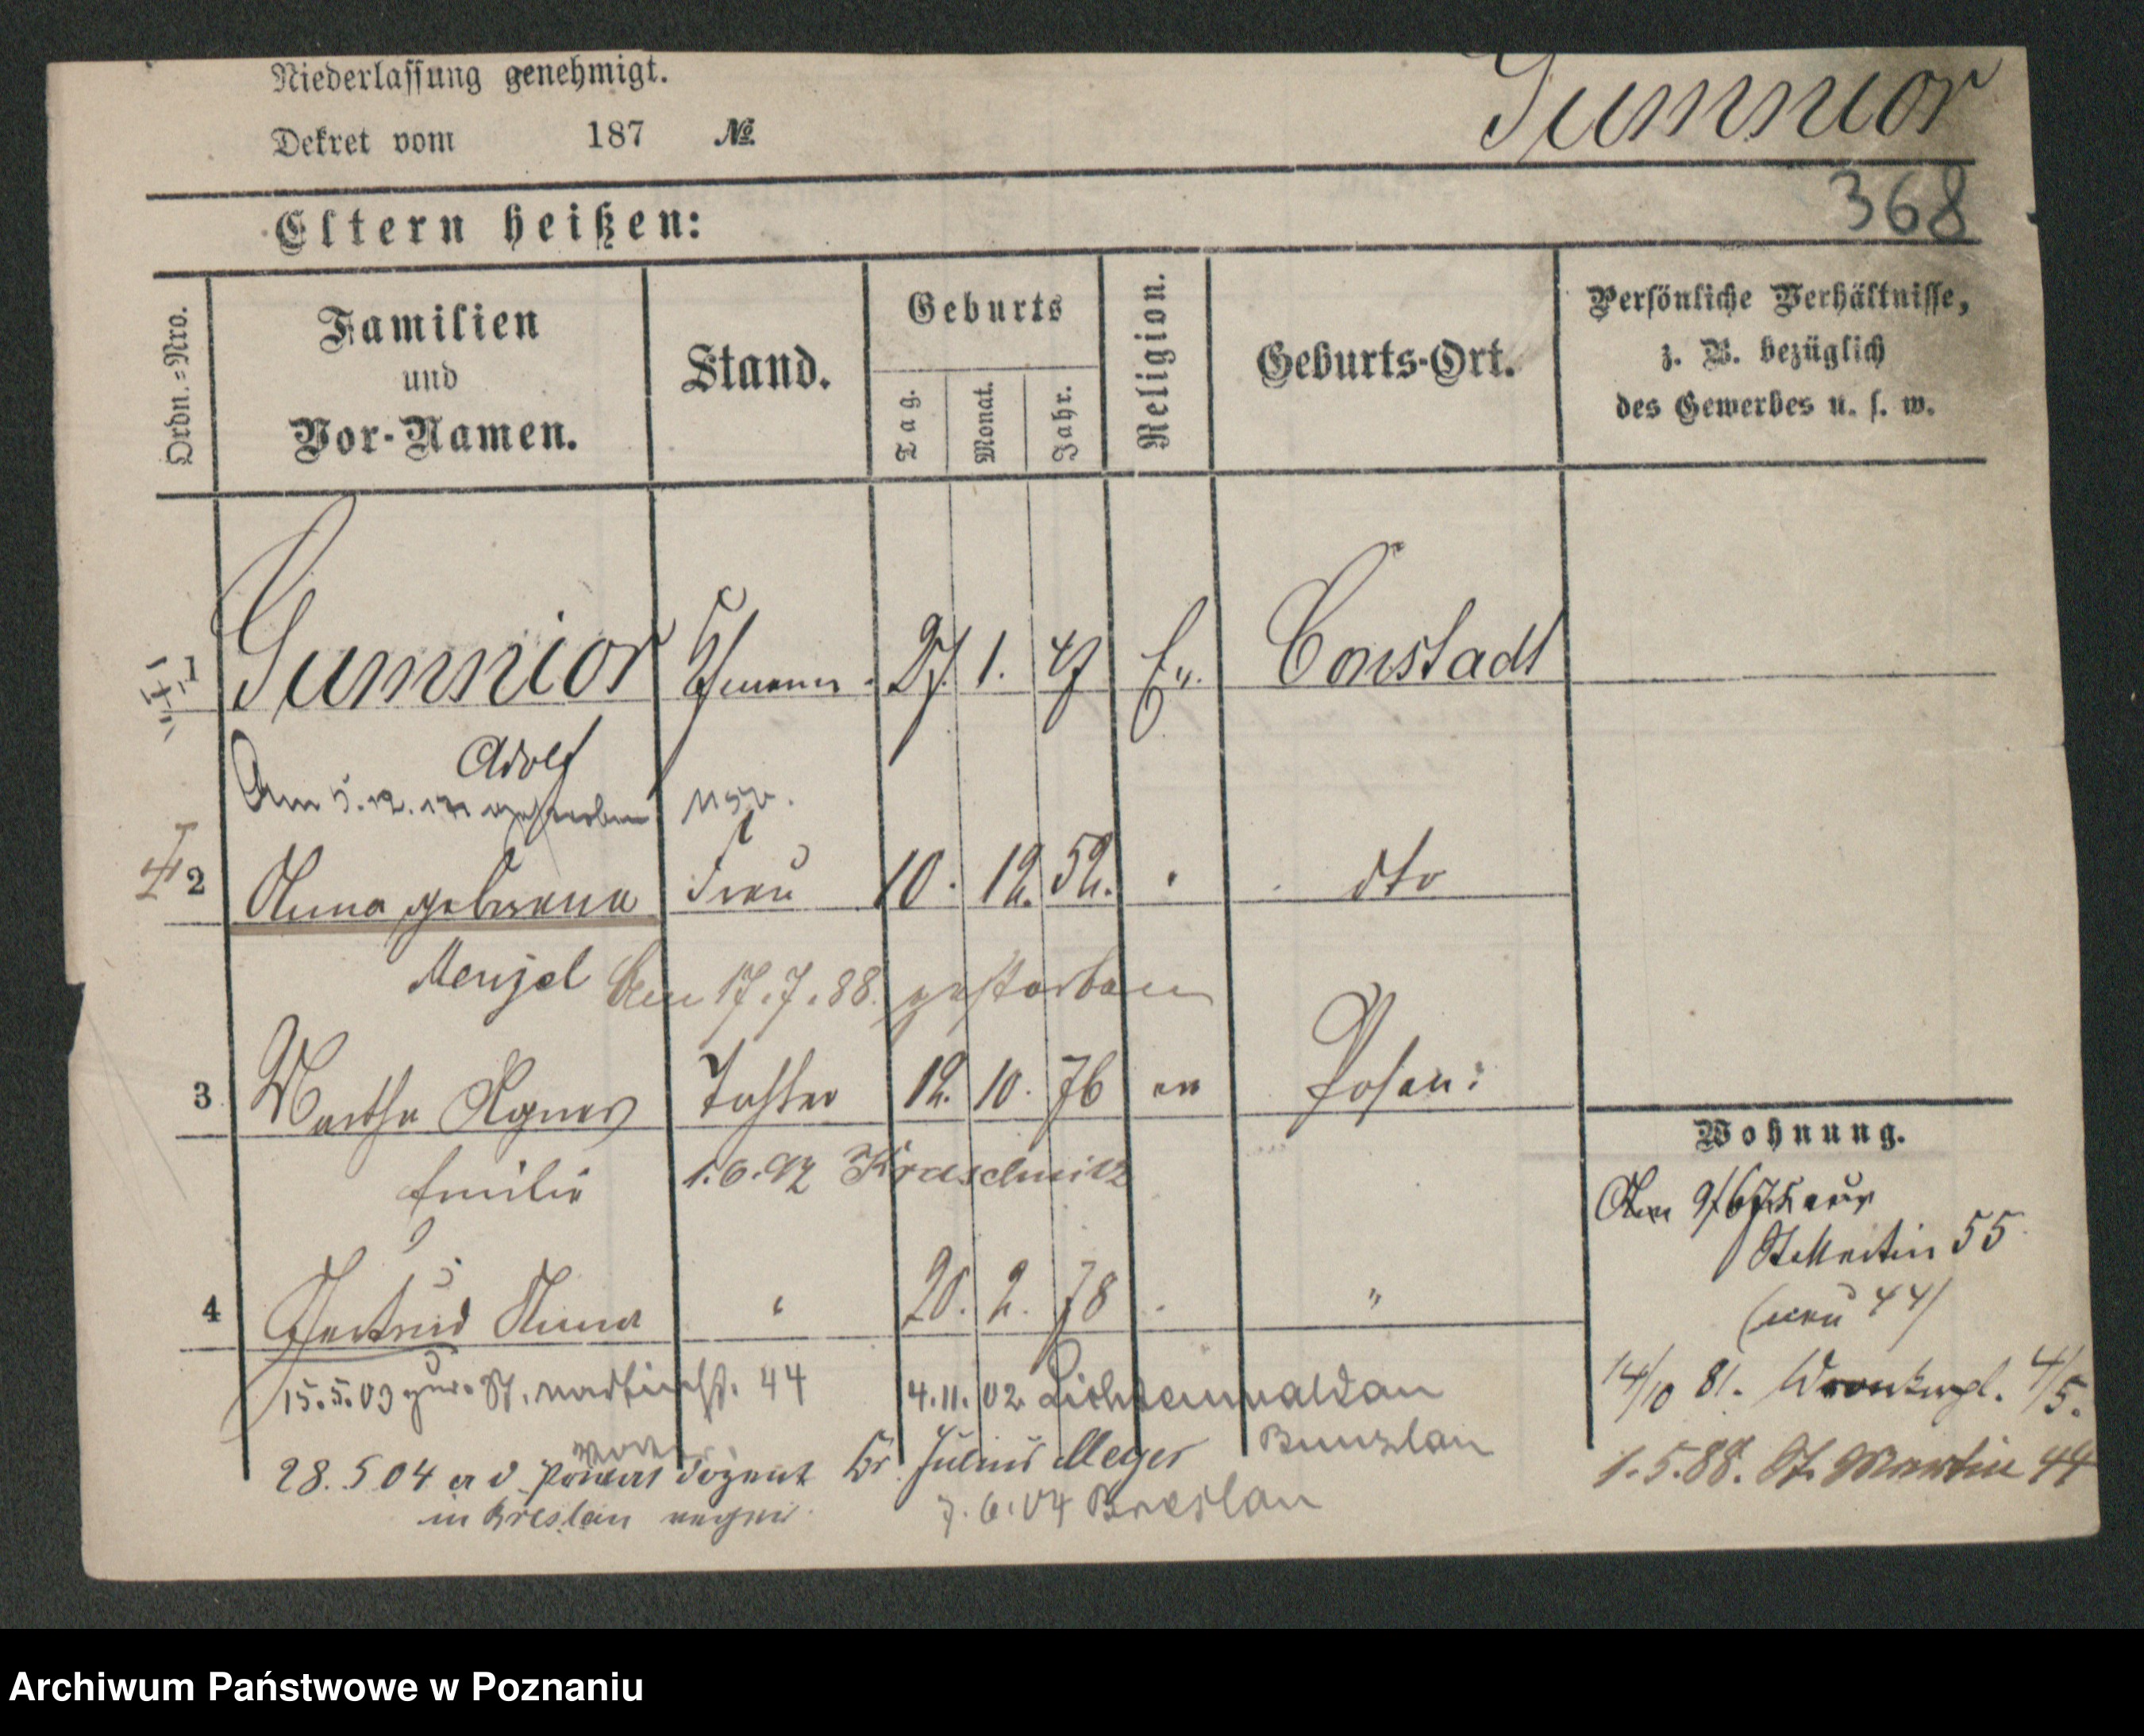 Niederlassung genehmigt.
Dekret vom 187 №
Gumnior
368
Eltern heißen:
Ordn.-Nro.
Familien
und
Vor-Namen.
Stand.
Geburts
Tag.
Monat.
Jahr.
Religion.
Geburts-Ort.
Persönliche Verhältnisse,
z. B. bezüglich
des Gewerbes u. s. w.
1 Gumnior 27. 1. 47 Ev. Constadt
Adolf
Am 5. 12. gestorben
2 Anna geborene Frau 10. 12. 52. " dto
Menzel Am 17.7.88. gestorben
3 Martha Agnes Tochter 12. 10. 76 ev Posen
Emilie 1.6.92 Kraschnitz
4 Gertrud Anna " 20. 2. 78 "
15.5.03 zur. St. Martinst. 44 4.11.02 Lichtenwaldau
Bunzlau
28.5 04 a d Dozent Dr. Julius Meyer
in Breslau 7.6.04 Breslau
Wohnung.
Am 9/6 aus
St Martin 55
(neu 44)
14/10 81. Wronkerpl. 4/5.
1.5.88. St. Martin 44
Archiwum Państwowe w Poznaniu